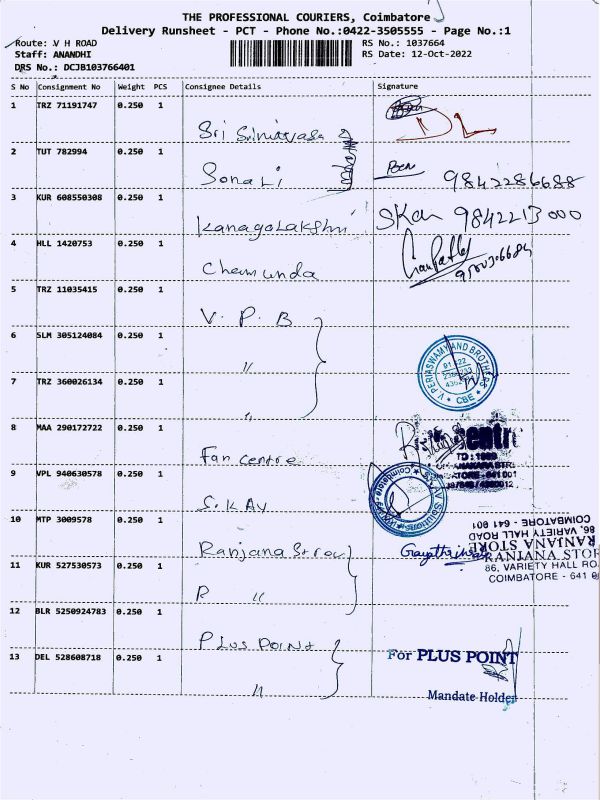 THE PROFESSIONAL COURIERS, Coimbatore
Delivery Runsheet - PCT - Phone No.:0422-3505555 - Page No.:1
Route: V H ROAD
RS No.: 1037664
Staff: ANANDHI
RS Date: 12-Oct-2022
DRS No.: DCJB103766401
S No Consignment No Weight PCS Consignee Details Signature
1 TRZ 71191747 0.250 1 Sri Srinivasa DL
2 TUT 782994 0.250 1 Sonali 9842286688
3 KUR 608550308 0.250 1 Kanagalakshmi 9842213000
4 HLL 1420753 0.250 1 Chamunda
5 TRZ 11035415 0.250 1 V. P. B
6 SLM 305124084 0.250 1 "
7 TRZ 360026134 0.250 1 "
V PERIASWAMY AND BROTHERS
CBE
8 MAA 290172722 0.250 1 Fan centre
9 VPL 940630578 0.250 1 S. KAY
10 MTP 3009578 0.250 1 Ranjana Store Gayathri
86, VARIETY HALL ROAD
COIMBATORE - 641 001
RANJANA STORE
RANJANA STOR
86, VARIETY HALL RO
COIMBATORE - 641 0
11 KUR 527530573 0.250 1 R "
12 BLR 5250924783 0.250 1 PLUS POINT
13 DEL 528608718 0.250 1 "
For PLUS POINT
Mandate Holder